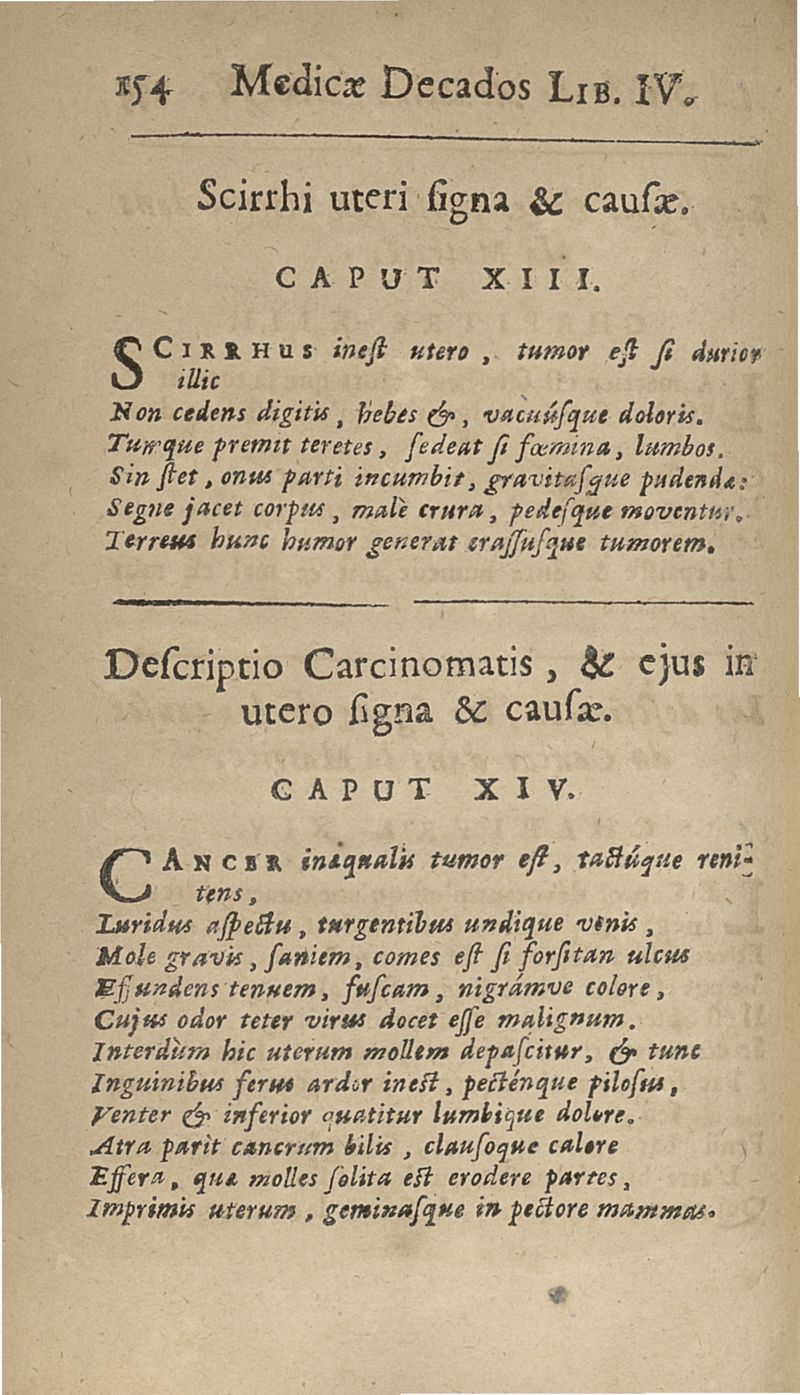 154 Medicæ Decados LIB. IV.
Scirrhi uteri ſigna & cauſæ.
CAPUT XIII.
SCIRRHUS ineſt utero, tumor eſt ſi durior
illic
Non cedens digitis, hebes &, vacuúſque doloris.
Tumque premit teretes, ſedeat ſi fœmina, lumbos.
Sin ſtet, onus parti incumbit, gravitaſque pudendæ:
Segne jacet corpus, malè crura, pedeſque moventur.
Terreus hunc humor generat craſſuſque tumorem.
Deſcriptio Carcinomatis, & ejus in
utero ſigna & cauſæ.
CAPUT XIV.
CANCER inæqualis tumor eſt, tactúque reni-
tens,
Luridus aſpectu, turgentibus undique venis,
Mole gravis, ſaniem, comes eſt ſi forſitan ulcus
Effundens tenuem, fuſcam, nigrámve colore,
Cujus odor teter virus docet eſſe malignum.
Interdùm hic uterum mollem depaſcitur, & tunc
Inguinibus ferus ardor ineſt, pecténque piloſus,
Venter & inferior quatitur lumbique dolore.
Atra parit cancrum bilis, clauſoque calore
Effera, quæ molles ſolita eſt erodere partes,
Imprimis uterum, geminaſque in pectore mammas.